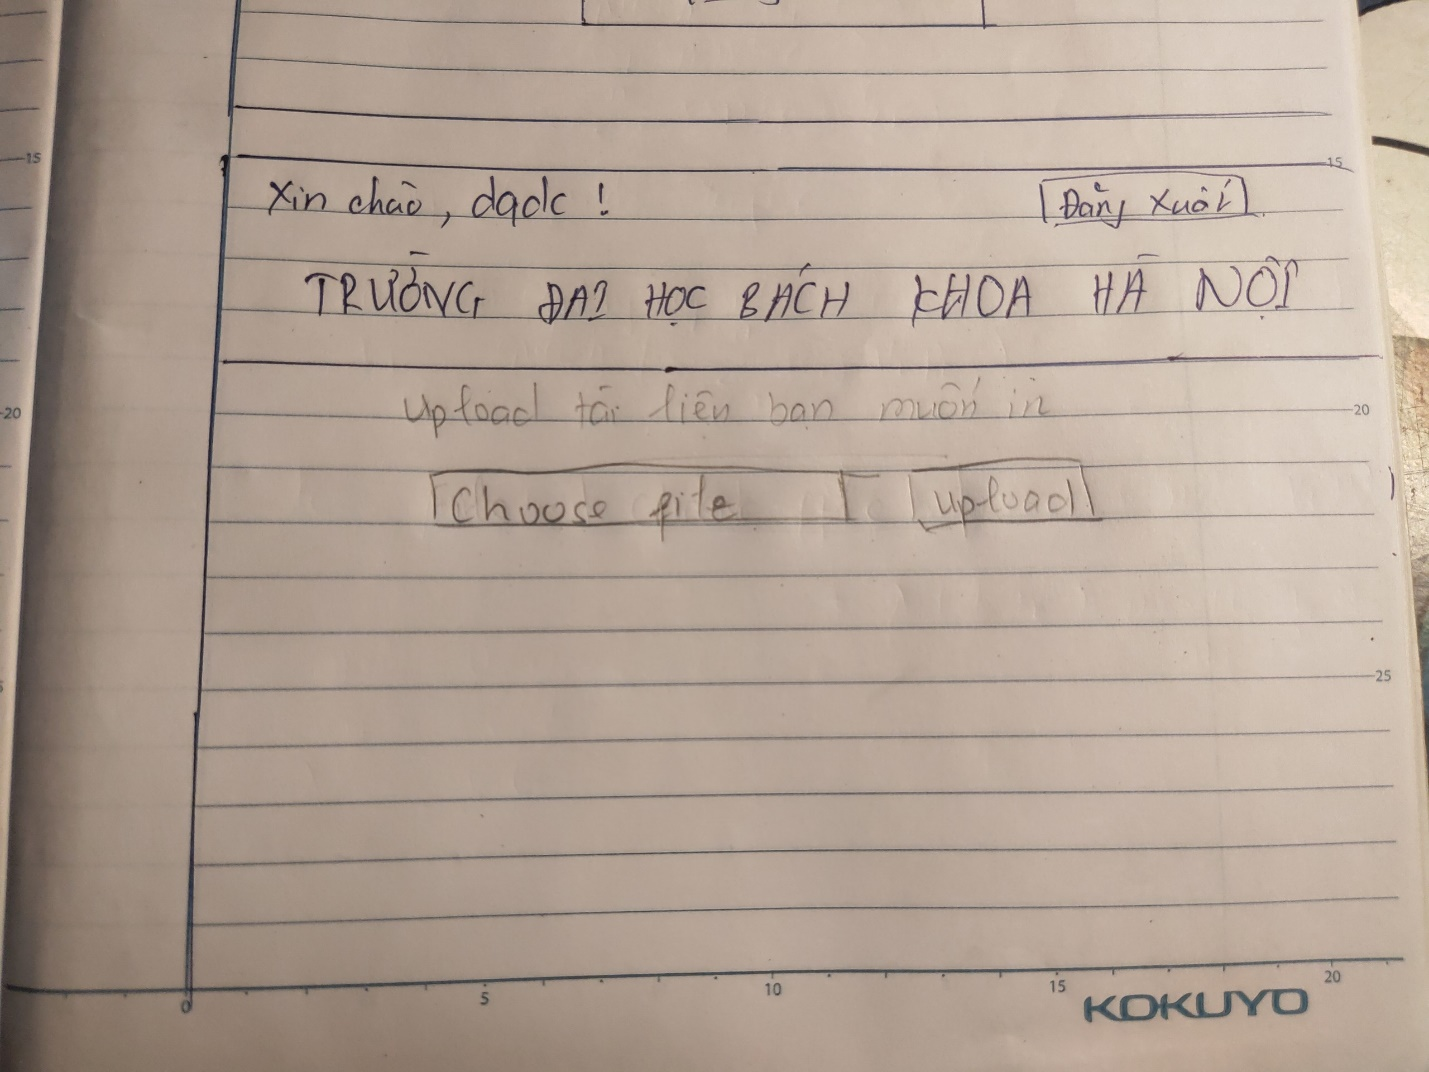 15
15
Xin chào, dqdc !
Đăng xuất
TRƯỜNG ĐẠI HỌC BÁCH KHOA HÀ NỘI
20
20
Upload tài liệu bạn muốn in
Choose file
Upload
25
0
5
10
15
20
KOKUYO